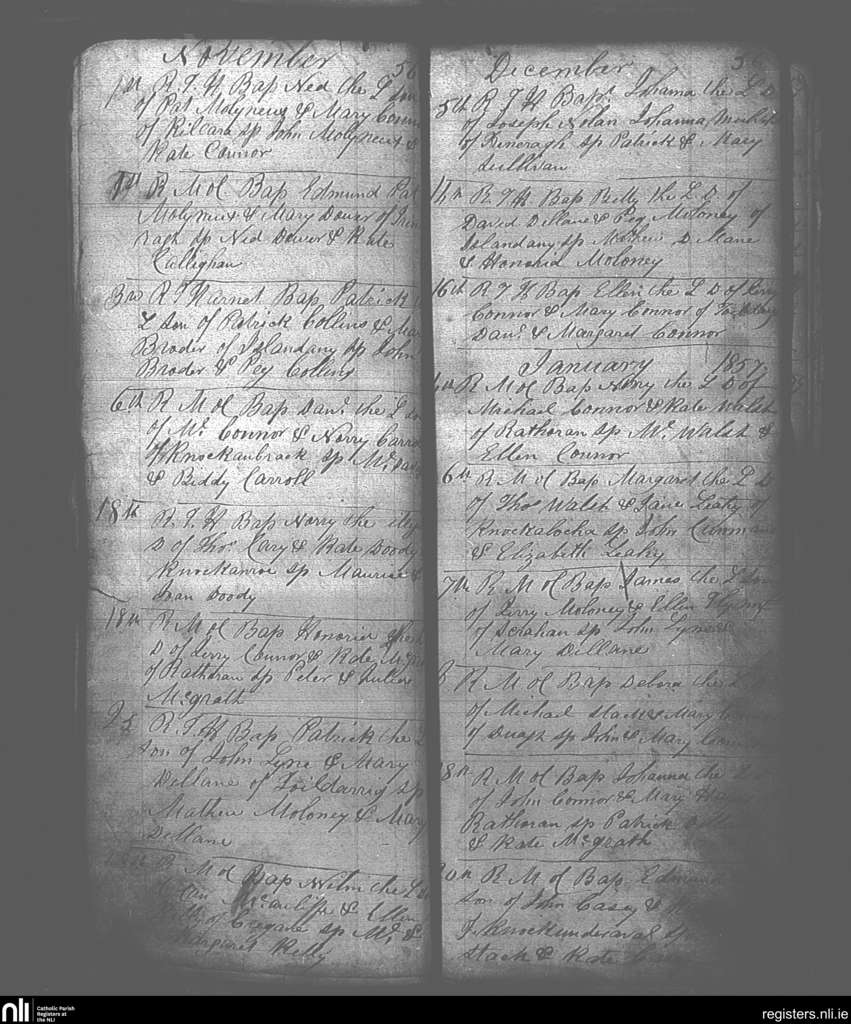 November 56
1st R T H Bap Ned the L Son
of Pat Molyneux & Mary Connor
of Kilcara sp John Molyneux &
Kate Connor
R M ol Bap Edmund Pat
Molyneux & Mary Dower of
sp Ned Dower & Kate
Cullighan
3rd R T Harnet Bap Patrick
L Son of Patrick Collins & Mary
Broder of Islandany sp John
Broder & Peg Collins
6th R M ol Bap Danl the L Son
of Ml Connor & Norry Carroll
of Knockaubrack sp Ml
& Biddy Carroll
18th R T H Bap Norry the
D of Thos Cary & Kate Doody
Knockanroe sp Maurice &
Joan Doody
18th R M ol Bap Honoria the
D of Jerry Connor & Kate
of Rathoran sp Peter & Julian
McGrath
R T H Bap Patrick the L
Son of John Lyne & Mary
Dillane of Foildarrig sp
Mathew Moloney & Mary
Dillane
R M ol Bap the L
McAuliffe & Ellen
of Cregane sp Ml &
Margaret Kelly
December 56
5th R T H Bapt Johanna the L D
of Joseph Nolan Johanna
of sp Patrick & Mary
Sullivan
14th R T H Bap Betty the L D of
David Dillane & Peg Moloney of
Islandany sp Mathew Dillane
& Honoria Moloney
16th R T H Bap Ellen the L D of
Connor & Mary Connor of
Danl & Margaret Connor
January 1857
R M ol Bap Norry the L D of
Michael Connor & Kate Walsh
of Rathoran sp Ml Walsh &
Ellen Connor
6th R M ol Bap Margaret the L D
of Thos Walsh & Jane Leahy of
Knockalocha sp John
& Elizabeth Leahy
7th R M ol Bap James the L Son
of Jerry Moloney & Ellen
of Scrahan sp John Lyne &
Mary Dillane
R M ol Bap Debora the L
of Michael Stack & Mary
of Duagh sp John & Mary
18th R M ol Bap Johanna the L D
of John Connor & Mary
Rathoran sp Patrick
& Kate McGrath
R M ol Bap Edmund
Son of John Casey &
Knockunderaval sp
Stack & Kate
nli
Catholic Parish
Registers at
the NLI
registers.nli.ie